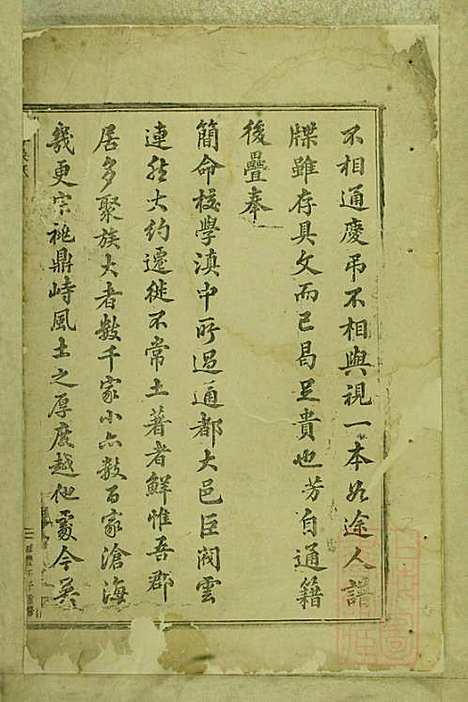 不相通慶弔不相與視一本如途人譜
牒雖存具文而已曷足貴也芳自通籍
後疊奉
簡命校學滇中所過通都大邑臣閥雲
連然大約遷徙不常土著者鮮惟吾郡
居多聚族大者數千家小亦數百家滄海
幾更宗祧鼎峙風土之厚度越他處今吳